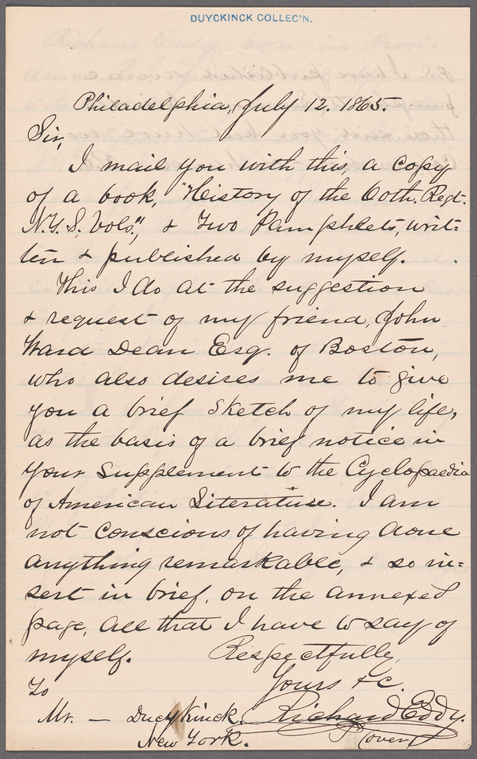 DUYCKINCK COLLEC'N.
Philadelphia, July 12. 1865.
Sir,
I mail you with this, a copy
of a book, "History of the 60th. Regt.
N.Y.S. Vols", & Two Pamphlets, writ=
ten & published by myself.
This I do at the suggestion
& request of my friend, John
Ward Dean Esq. of Boston,
who also desires me to give
you a brief sketch of my life,
as the basis of a brief notice in
your Supplement to the Cyclopaedia
of American Literature. I am
not conscious of having done
anything remarkable, & so in=
sert in brief, on the annexed
page, all that I have to say of
myself. Respectfully,
Yours &c.
To
Mr. — Duckyinck. Richard Eddy.
New York. (over)